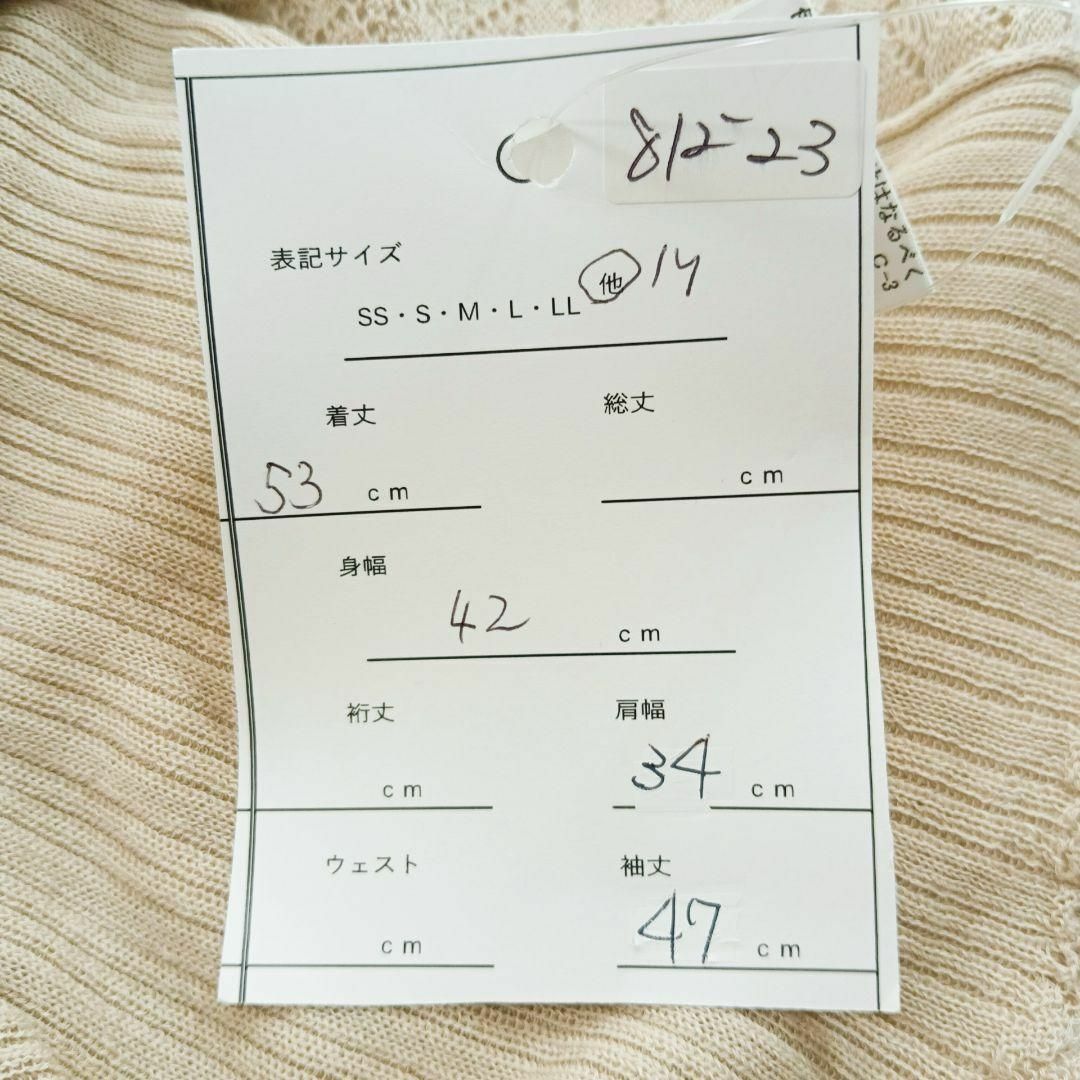 812-23
はなるべく
C-3
表記サイズ
SS・S・M・L・LL 他 14
着丈
総丈
53 cm
cm
身幅
42 cm
裄丈
肩幅
cm
34 cm
ウェスト
袖丈
cm
47 cm